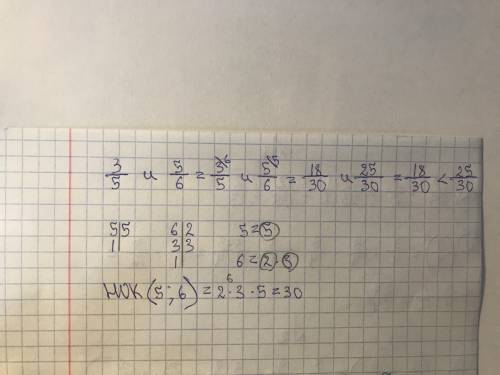 3/5 и 5/6 = 3^6/5 и 5^5/6 = 18/30 и 25/30 = 18/30 < 25/30
5|5 6|2 5=5
1| 3|3
1| 6=2·3
НОК(5;6)=2·3·5=30